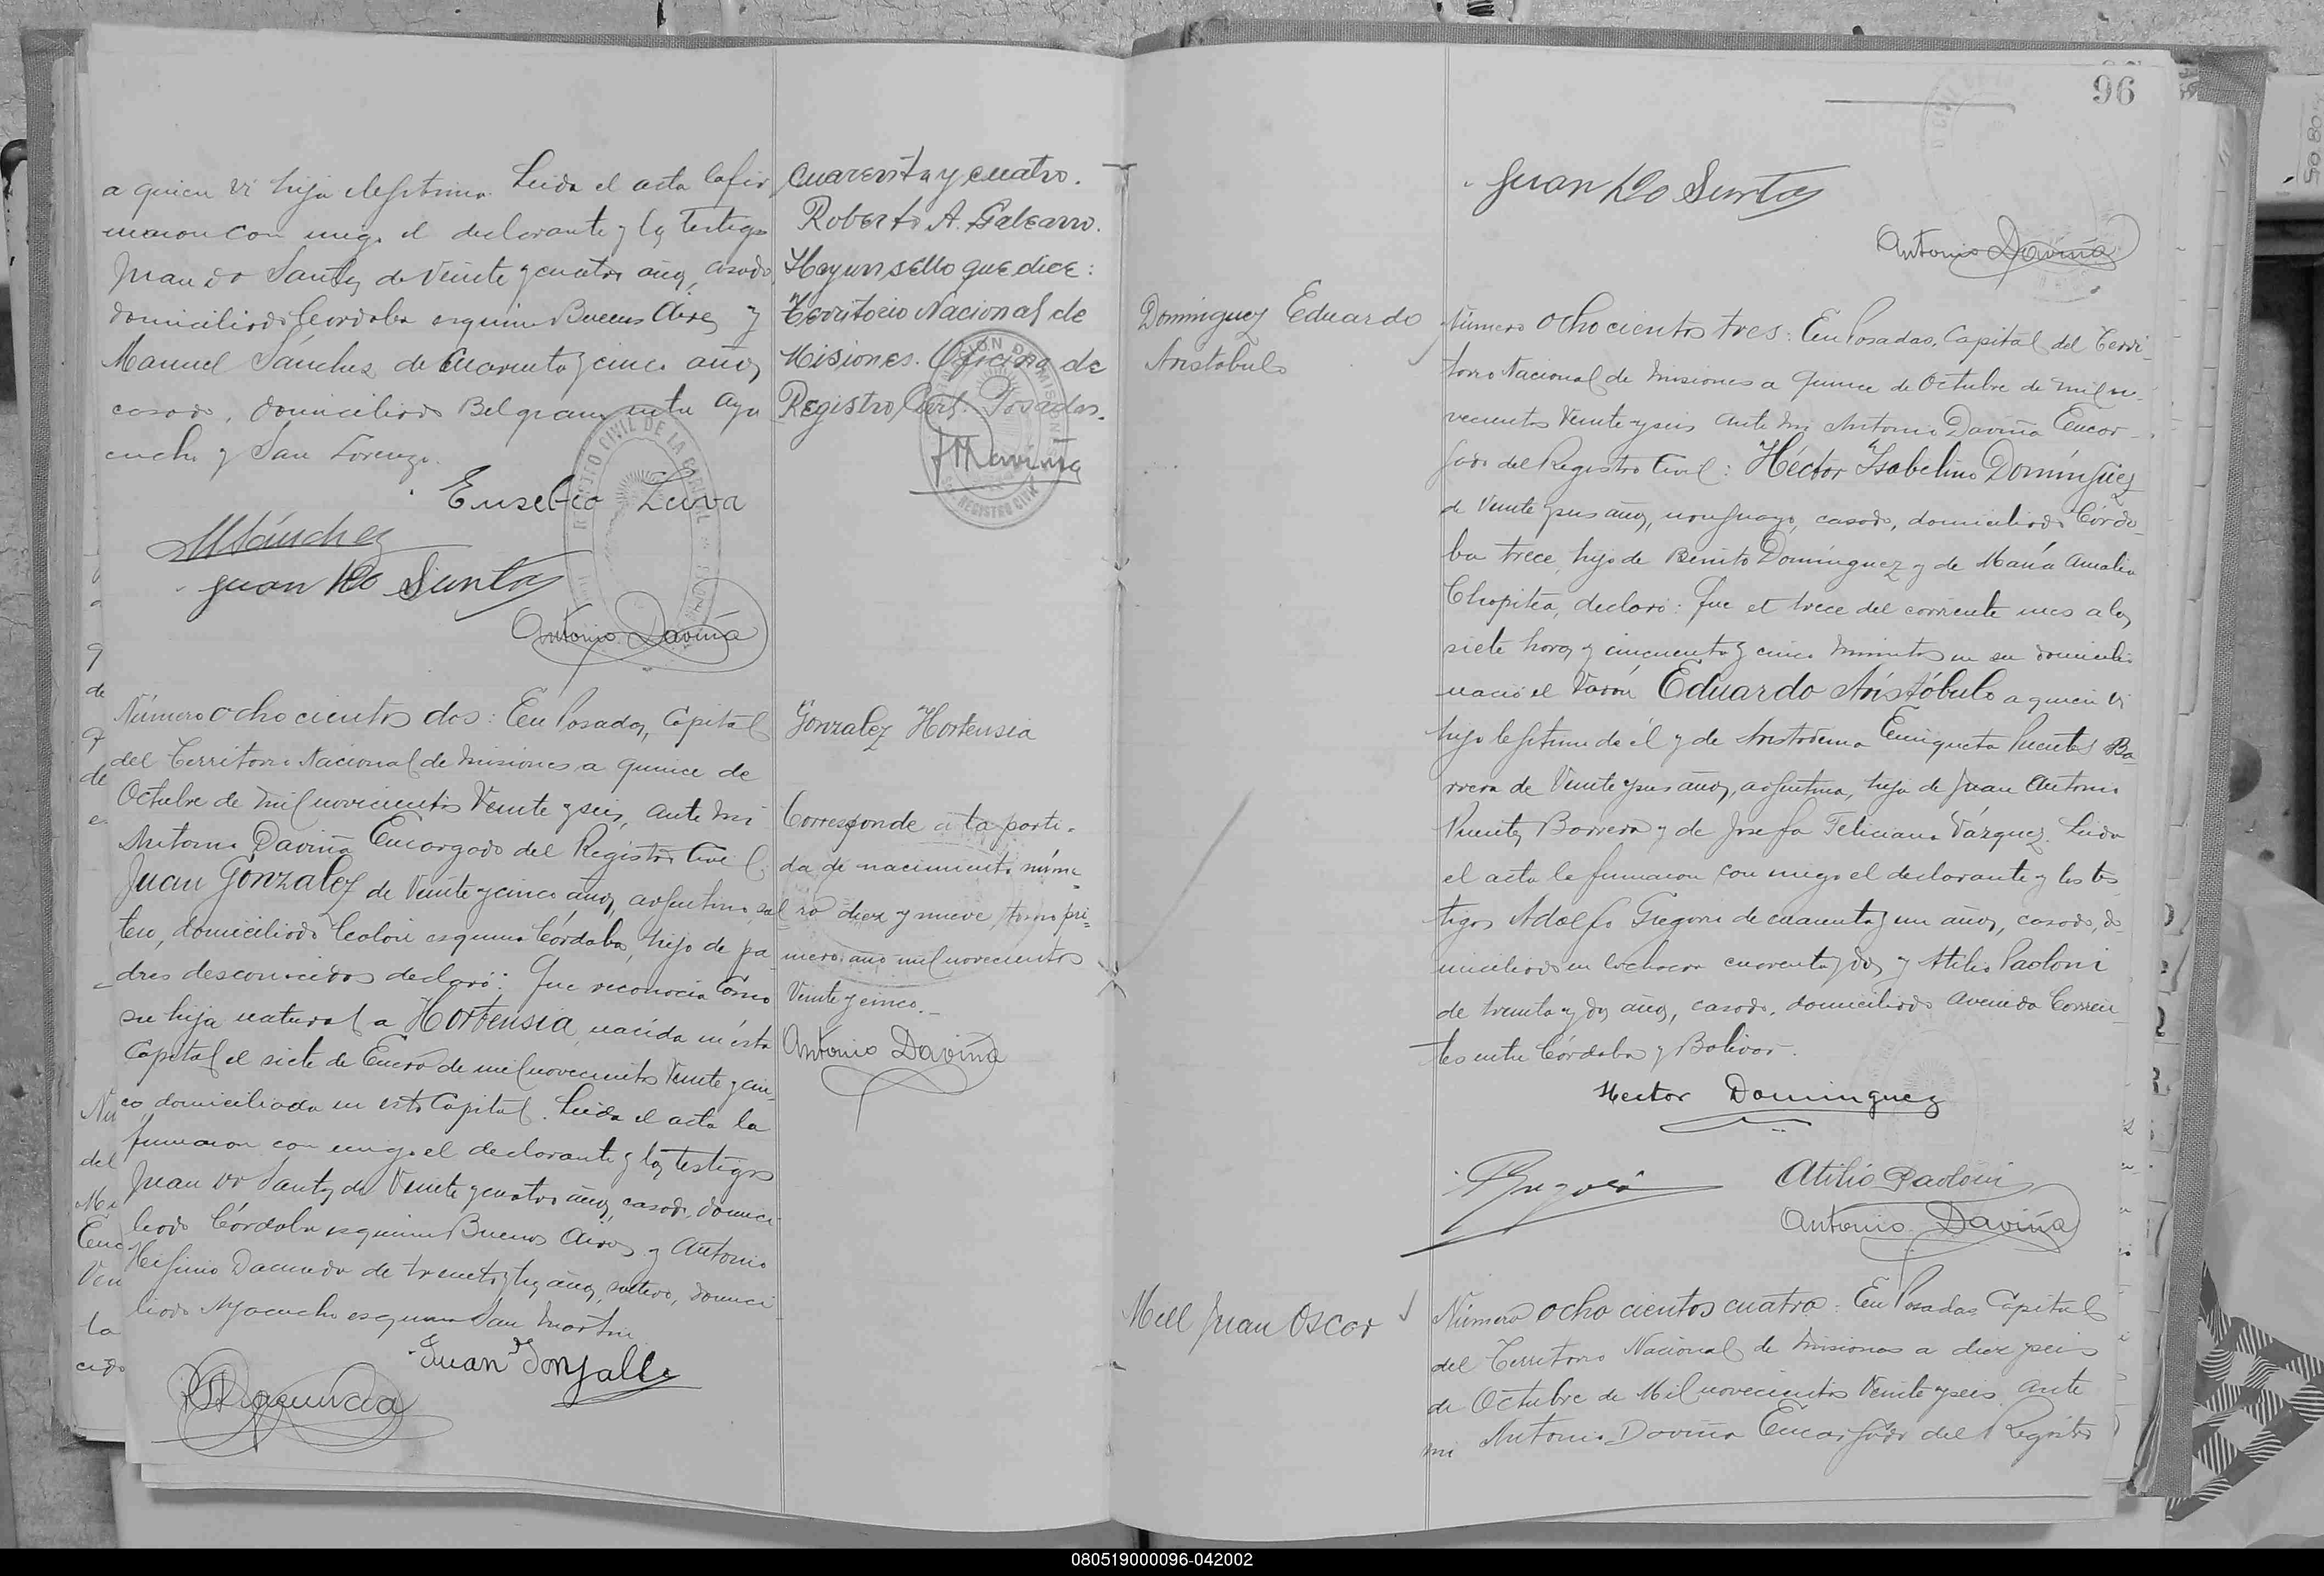 a quien vi hija legítima. Leida el acta la fir
maron con migo el declarante y los testigos
Juan do Santos de veinte y cuatro años, casado,
domiciliado Córdoba esquina Buenos Aires y
Manuel Sánchez de cuarenta y cinco años,
casado, domiciliado Belgrano entre Aya
cucho y San Lorenzo.
Eusebio Leiva
MSánchez
Juan do Santos
Antonio Daviña
Número ochocientos dos: En Posadas, Capital
del Territorio Nacional de Misiones a quince de
Octubre de mil novecientos veinte y seis, ante mi
Antonio Daviña Encargado del Registro Civil:
Juan González de veinte y cinco años, argentino, sol
tero, domiciliado Colón esquina Córdoba, hijo de pa
dres desconocidos declaró: Que reconocía como
su hija natural a Hortensia, nacida en ésta
Capital el siete de Enero de mil novecientos veinte y cin
co, domiciliada en esta Capital. Leida el acta la
firmaron con migo el declarante y los testigos
Juan do Santos de veinte y cuatro años, casado, domici
liado Córdoba esquina Buenos Aires y Antonio
Higinio Dacunda de treinta y tres años, soltero, domici
liado Ayacucho esquina San Martín.
Juan Gonzalez
cuarenta y cuatro.
Roberto A. Galearro.
Hay un sello que dice:
Territorio Nacional de
Misiones. Oficina de
Registro Civil. Posadas.
Gonzalez Hortensia
Corresponde a la parti-
da de nacimiento núme-
ro diez y nueve, tomo pri-
mero, año mil novecientos
veinte y cinco.-
Antonio Daviña
96
Juan do Santos
Antonio Daviña
Dominguez Eduardo
Aristobulo
Número ochocientos tres: En Posadas, Capital del Terri-
torio Nacional de Misiones a quince de Octubre de mil no-
vecientos veinte y seis ante mi Antonio Daviña Encar-
gado del Registro Civil: Héctor Isabelino Domínguez
de veinte y seis años, uruguayo, casado, domiciliado Córdo-
ba trece, hijo de Benito Domínguez y de María Amalia
Chopitea, declaró: Que el trece del corriente mes a las
siete horas y cincuenta y cinco minutos en su domicilio
nació el varón Eduardo Aristóbulo a quien vi
hijo legítimo de él y de Aristodema Enriqueta Puentes Ba
rrera de veinte y seis años, argentina, hija de Juan Antonio
Puentes Barrera y de Josefa Feliciana Vázquez. Leida
el acta la firmaron con migo el declarante y los tes
tigos Adolfo Gregori de cuarenta y un años, casado, do
miciliado en Lochacra cuarenta y dos y Atilio Paoloni
de treinta y dos años, casado, domiciliado Avenida Corrien-
tes entre Córdoba y Bolivar.
Hector Dominguez
Atilio Paoloni
Antonio Daviña
Mell Juan Oscar
Número ochocientos cuatro: En Posadas Capital
del Territorio Nacional de Misiones a diez y seis
de Octubre de Mil novecientos veinte y seis ante
mi Antonio Daviña Encargado del Registro
080519000096-042002